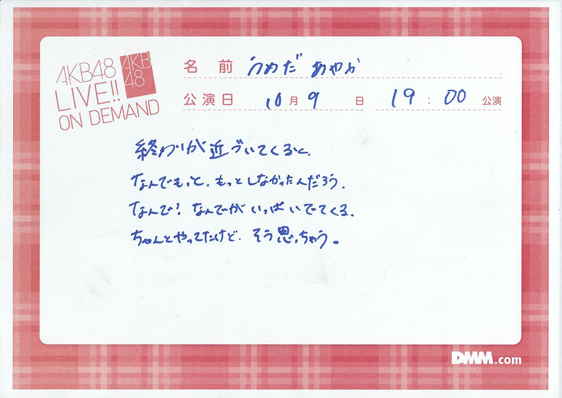 AKB48
LIVE!!
ON DEMAND
AKB
48
名前 うめだ あやか
公演日 10月9日 19:00 公演
終わりが近づいてくると、
なんでもっと、もっとしなかったんだろう、
なんで？なんでがいっぱいでてくる。
ちゃんとやってたけど、そう思っちゃう。
DMM.com